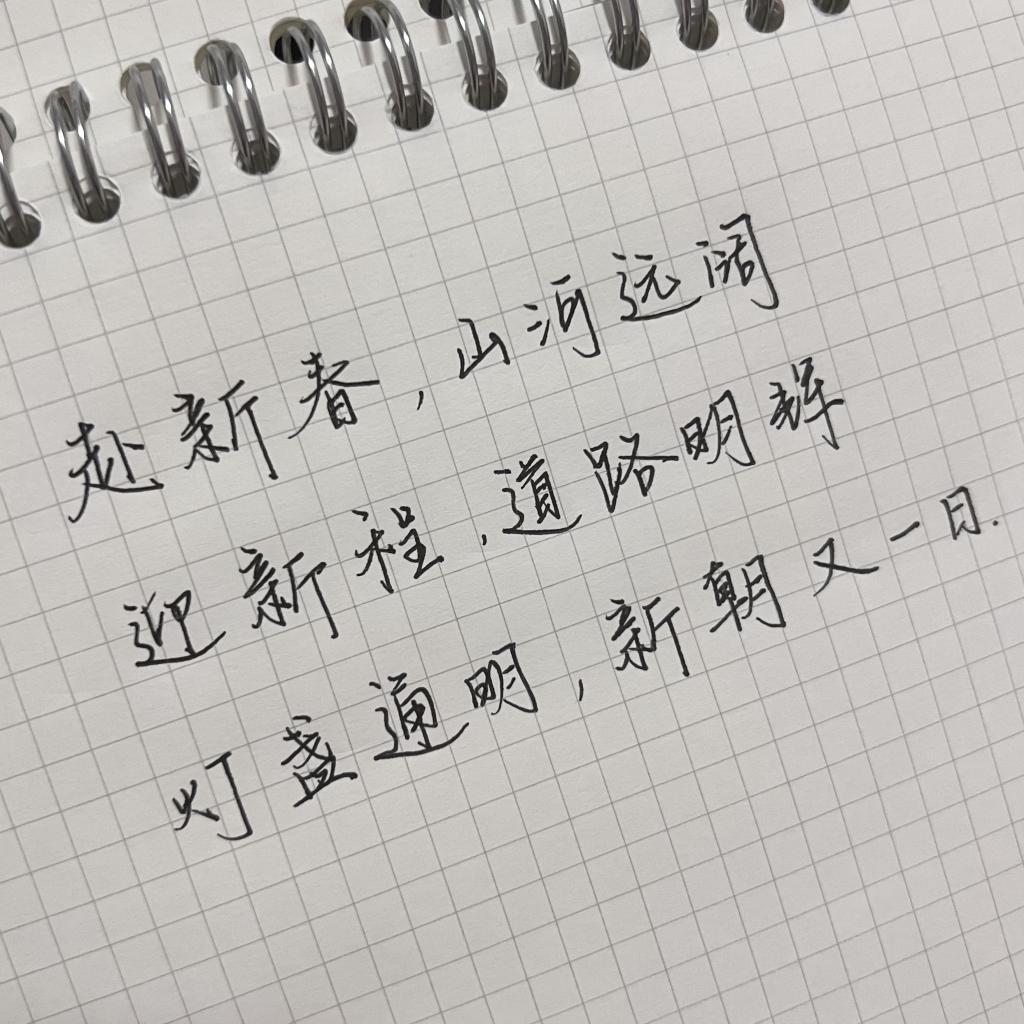 赴新春，山河远阔
迎新程，道路明辉
灯盏通明，新朝又一日.